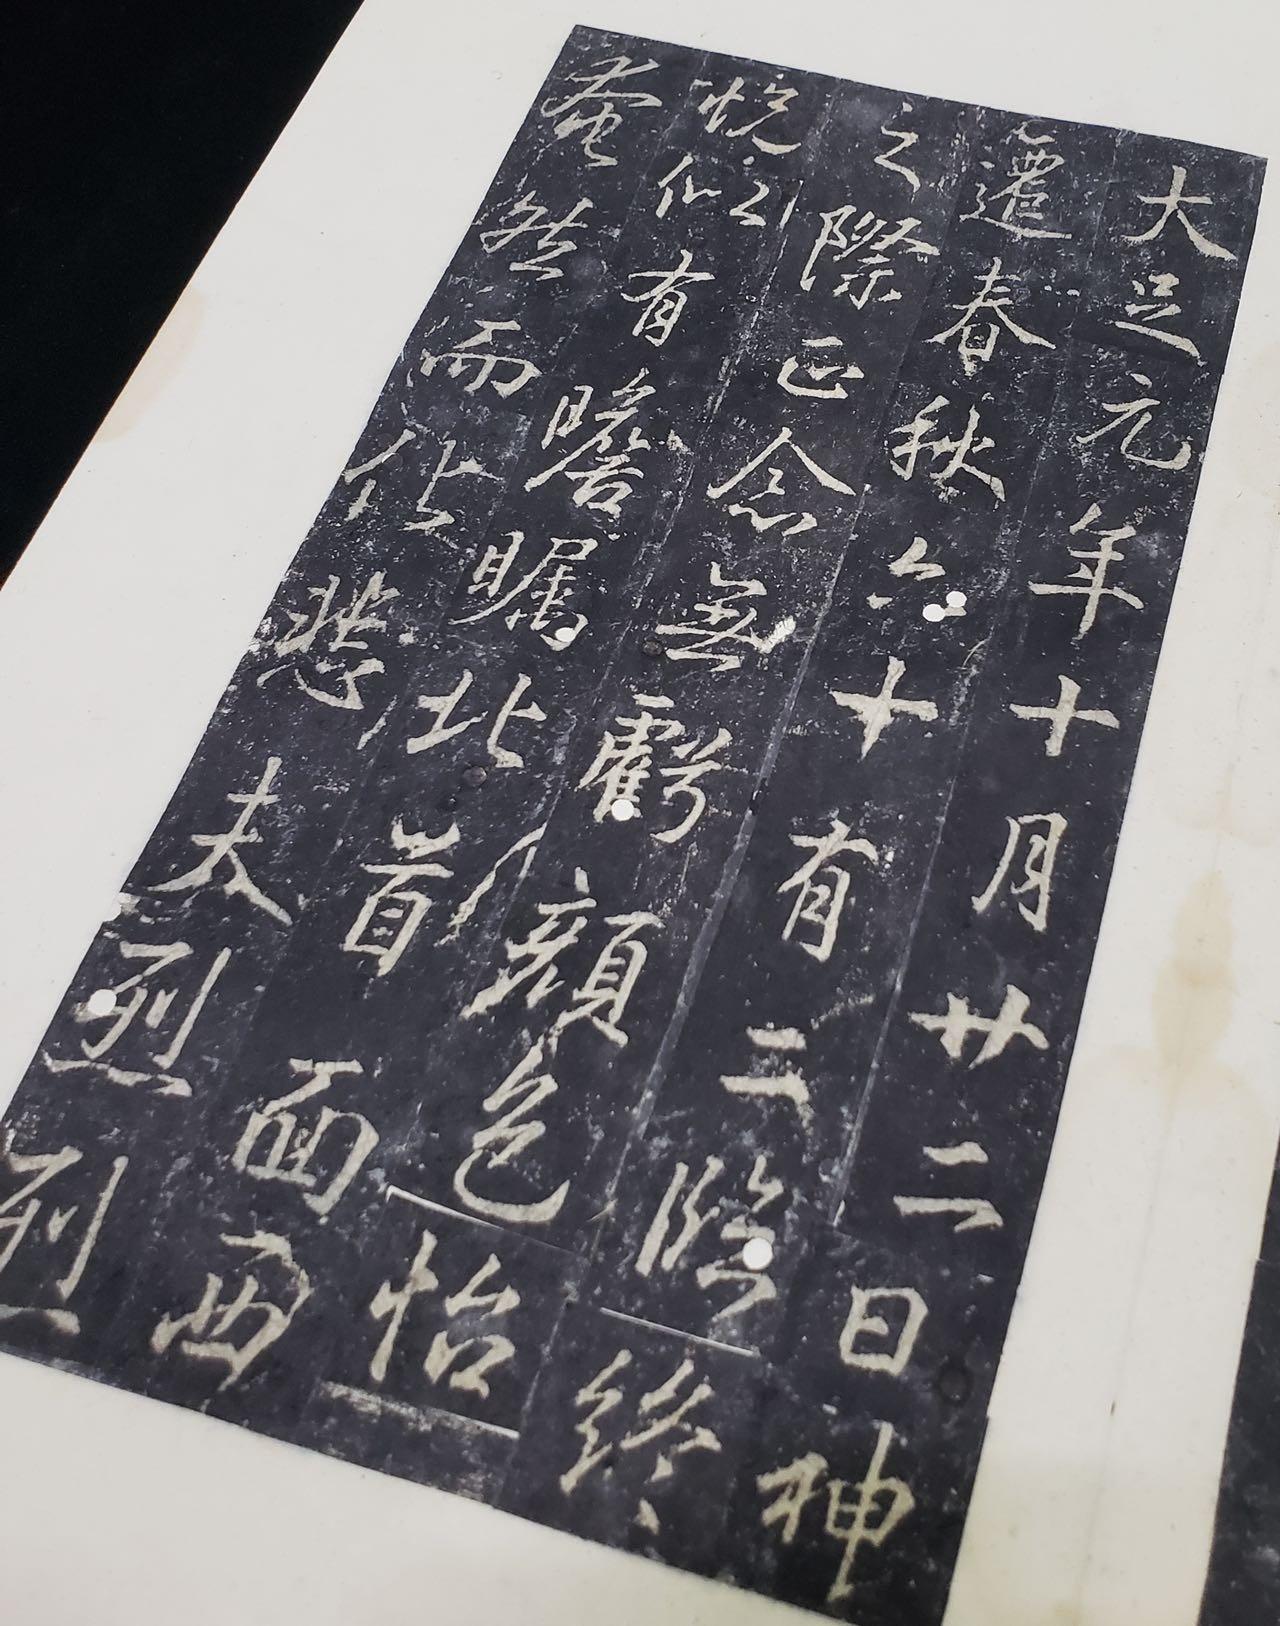 大足元年十月廿二日神
遷春秋六十有三臨終
之際正念無虧顏色怡
悅似有瞻矚北首面西
奄然而化悲夫烈烈